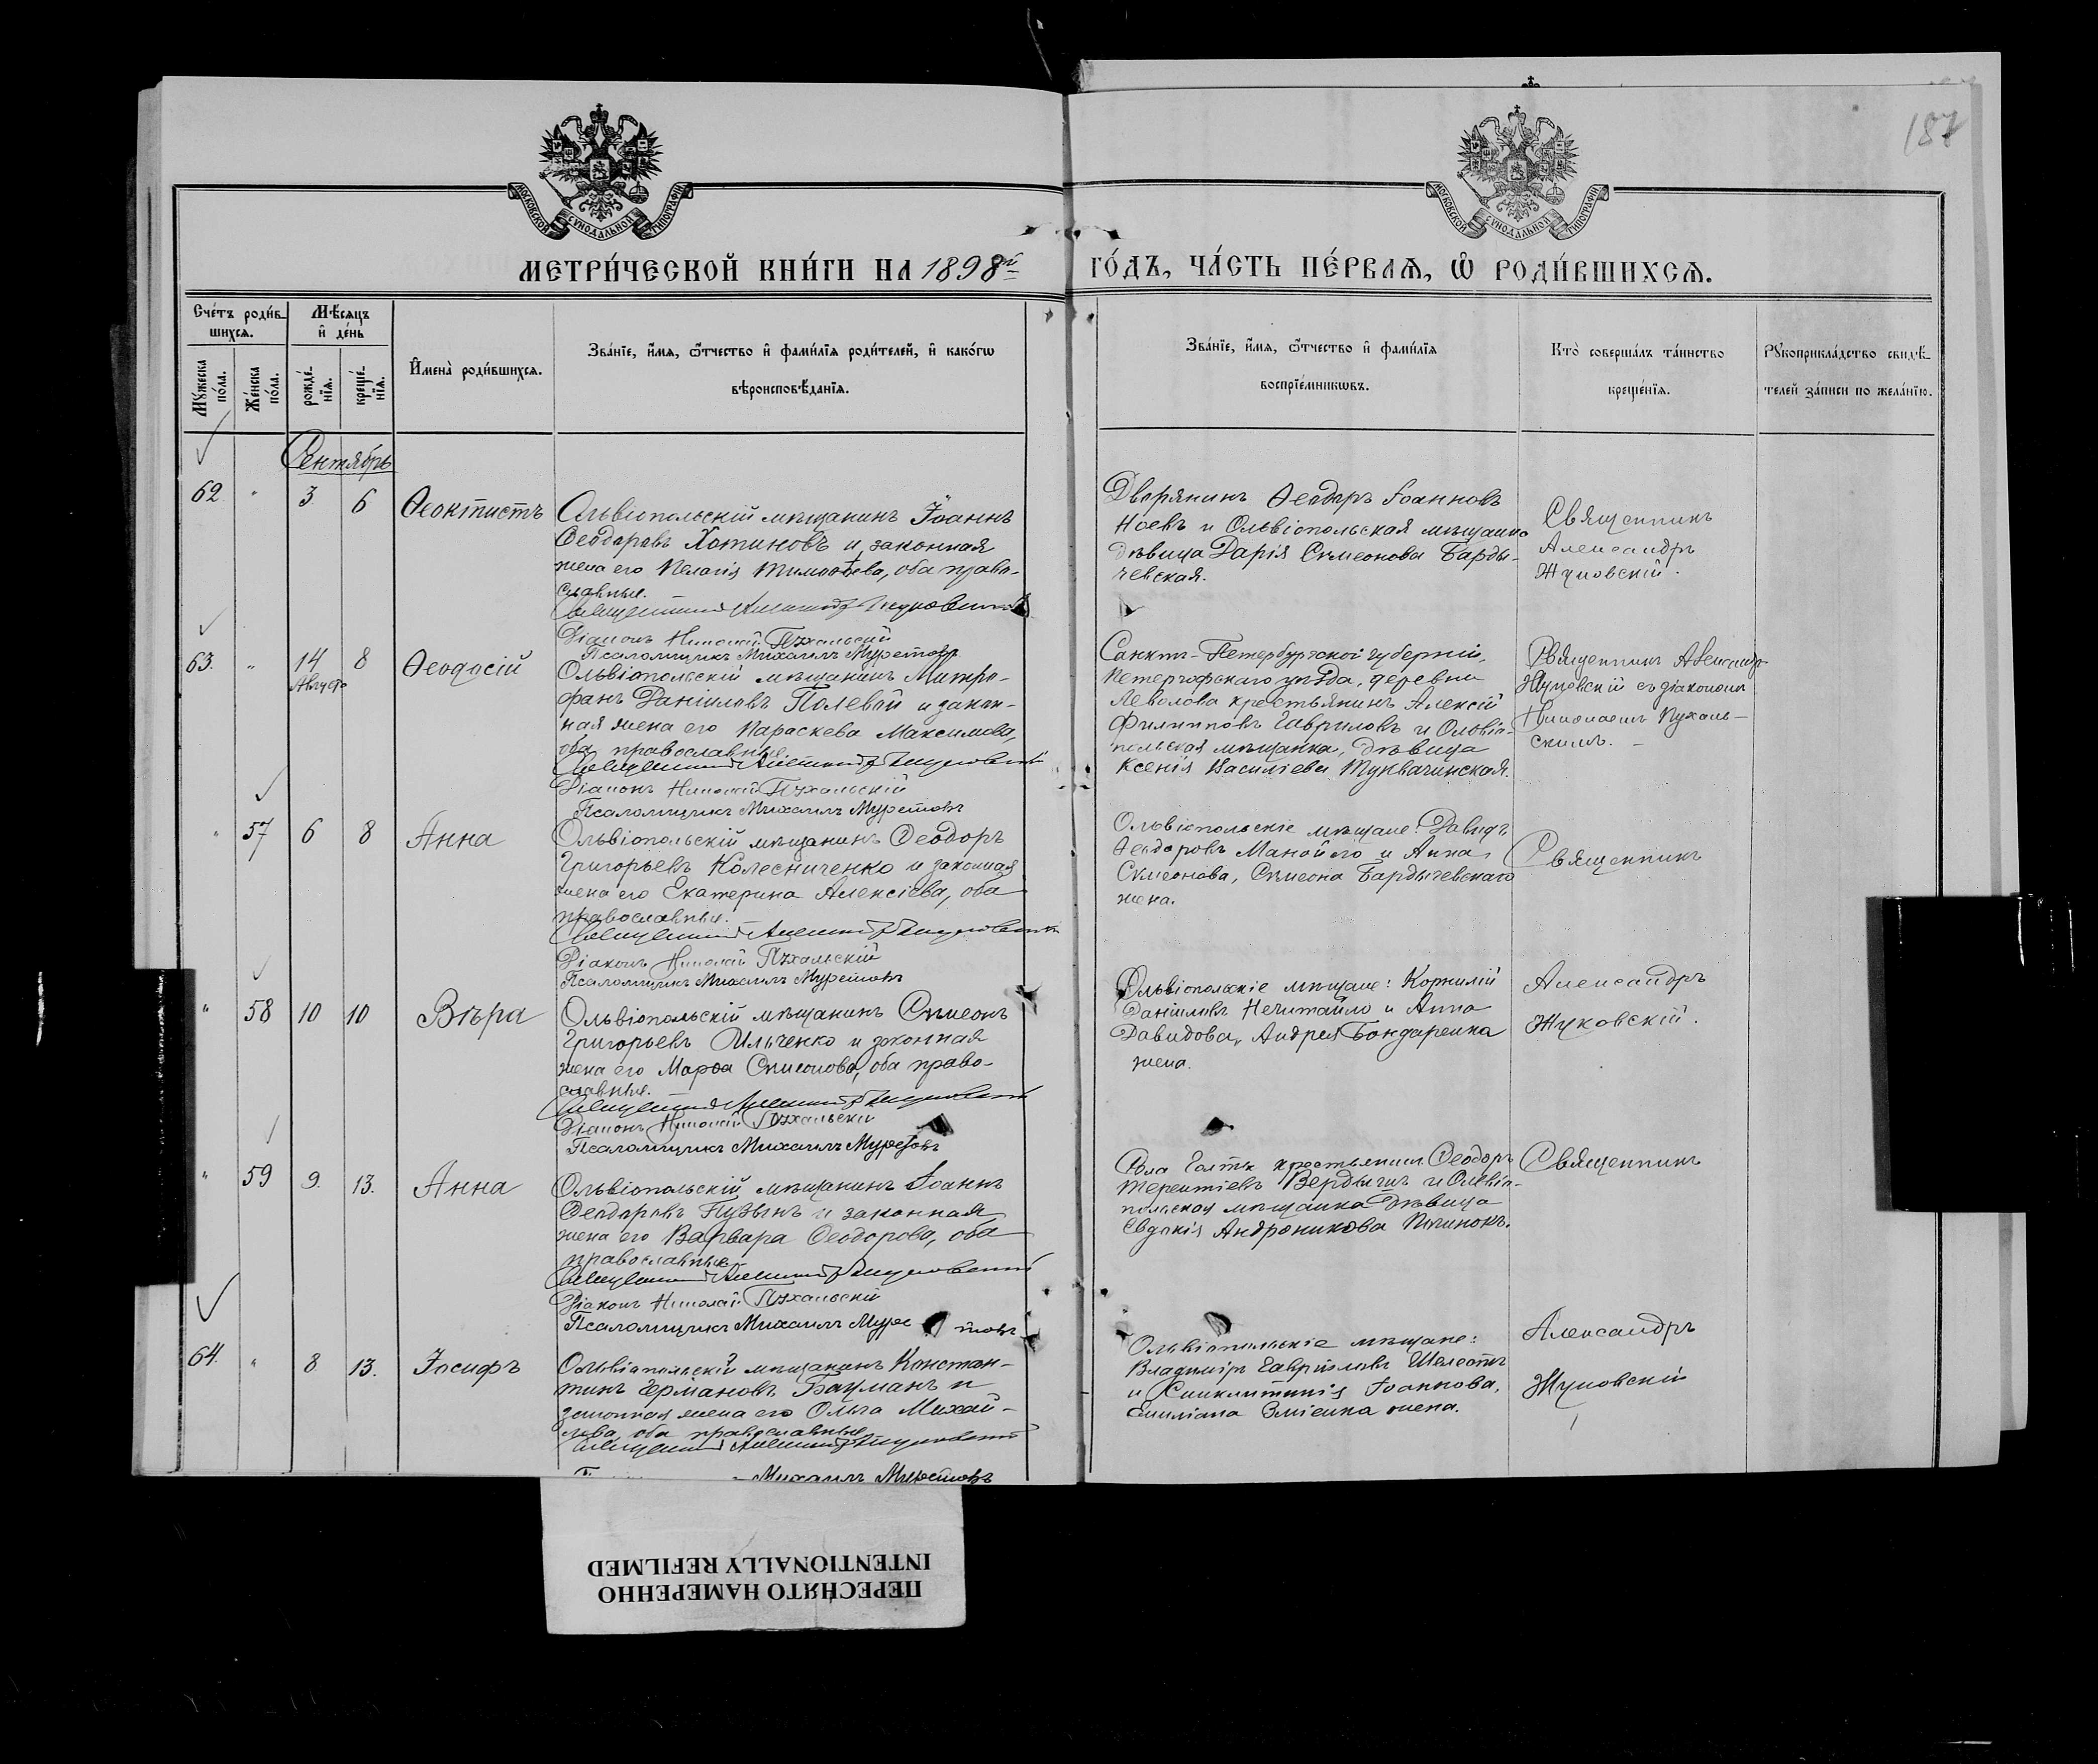 187
МОСКОВСКОЙ СУНОДАЛЬНОЙ ТИПОГРАФІИ
МОСКОВСКОЙ СУНОДАЛЬНОЙ ТИПОГРАФІИ
МЕТРИ́ЧЕСКОЙ КНИ́ГИ НА 1898й
ГО́ДЪ, ЧА́СТЬ ПЕ́РВАѦ, Ѽ РОДИ́ВШИХСѦ.
Сче́тъ роди́в-
шихсѧ.
Мꙋ́жеска по́ла.
Же́нска по́ла.
Мѣ́сѧцъ
и҆ де́нь
рожде́-
нїѧ.
креще́-
нїѧ.
И҆мена̀ роди́вшихсѧ.
Зва́нїе, и҆́мѧ, ѻ҆́тчество и҆ фами́лїѧ роди́телей, и҆ како́гѡ
вѣроисповѣ́данїѧ.
Зва́нїе, и҆́мѧ, ѻ҆́тчество и҆ фами́лїѧ
воспрїе́мникѡвъ.
Кто̀ соверша́лъ та́инство
креще́нїѧ.
Рꙋкоприкла́дство свидѣ́-
телей за́писи по жела́нїю.
Сентябрь
62. " 3 6 Ѳеоктистъ
Ольвіопольскій мѣщанинъ Іоаннъ
Ѳеодоровъ Хотиновъ и законная
жена его Пелагія Тимоѳѣева, оба право-
славные.
Священникъ Александръ Жуковскій
Діаконъ Николай Пухальскій
Псаломщикъ Михаилъ Муретовъ
Дворянинъ Ѳеодоръ Іоанновъ
Ноевъ и Ольвіопольская мѣщанка
дѣвица Дарія Сѵмеонова Барды-
чевская.
Священникъ
Александръ
Жуковскій.
63. " 14 8 Ѳеодосій
Августа
Ольвіопольскій мѣщанинъ Митро-
фанъ Даніиловъ Полевой и закон-
ная жена его Параскева Максимова,
оба православные.
Священникъ Александръ Жуковскій
Діаконъ Николай Пухальскій
Псаломщикъ Михаилъ Муретовъ
Санктъ-Петербургской губерніи,
Петергофскаго уѣзда, деревни
крестьянинъ Алексій
Филипповъ Гавриловъ и Ольвіо-
польская мѣщанка, дѣвица
Ксенія Василіева Туквачинская.
Священникъ Александръ
Жуковскій съ діакономъ
Николаемъ Пухаль-
скимъ.
" 57 6 8 Анна
Ольвіопольскій мѣщанинъ Ѳеодоръ
Григорьевъ Колесниченко и законная
жена его Екатерина Алексіева, оба
православные.
Священникъ Александръ Жуковскій
Діаконъ Николай Пухальскій
Псаломщикъ Михаилъ Муретовъ
Ольвіопольскіе мѣщане: Давидъ
Ѳеодоровъ Манойло и Анна
Сѵмеонова, Сѵмеона Бардычевскаго
жена.
Священникъ
" 58 10 10 Вѣра
Ольвіопольскій мѣщанинъ Сѵмеонъ
Григорьевъ Ильченко и законная
жена его Марѳа Сѵмеонова, оба право-
славные.
Священникъ Александръ Жуковскій
Діаконъ Николай Пухальскій
Псаломщикъ Михаилъ Муретовъ
Ольвіопольскіе мѣщане: Корнилій
Даніиловъ Нечитайло и Анна
Давидова, Андрея Бондаренка
жена.
Александръ
Жуковскій.
" 59 9. 13. Анна
Ольвіопольскій мѣщанинъ Іоаннъ
Ѳеодоровъ Пузынъ и законная
жена его Варвара Ѳеодорова, оба
православные.
Священникъ Александръ Жуковскій
Діаконъ Николай Пухальскій
Псаломщикъ Михаилъ Муретовъ
Села Голты крестьянинъ Ѳеодоръ
Терентіевъ Вердышъ и Ольвіо-
польская мѣщанка дѣвица
Евдокія Андроникова Починокъ.
Священникъ
64. " 8 13. Іосифъ
Ольвіопольскій мѣщанинъ Констан-
тинъ Германовъ Бауманъ и
законная жена его Ольга Михай-
лова, оба православные
Священникъ Александръ Жуковскій
Михаилъ Муретовъ
Ольвіопольскіе мѣщане:
Владиміръ Гавріиловъ Шелестъ
и Синклитикія Іоаннова,
Емиліана Зміенка жена.
Александръ
Жуковскій
ПЕРЕСНЯТО НАМЕРЕННО
INTENTIONALLY REFILMED